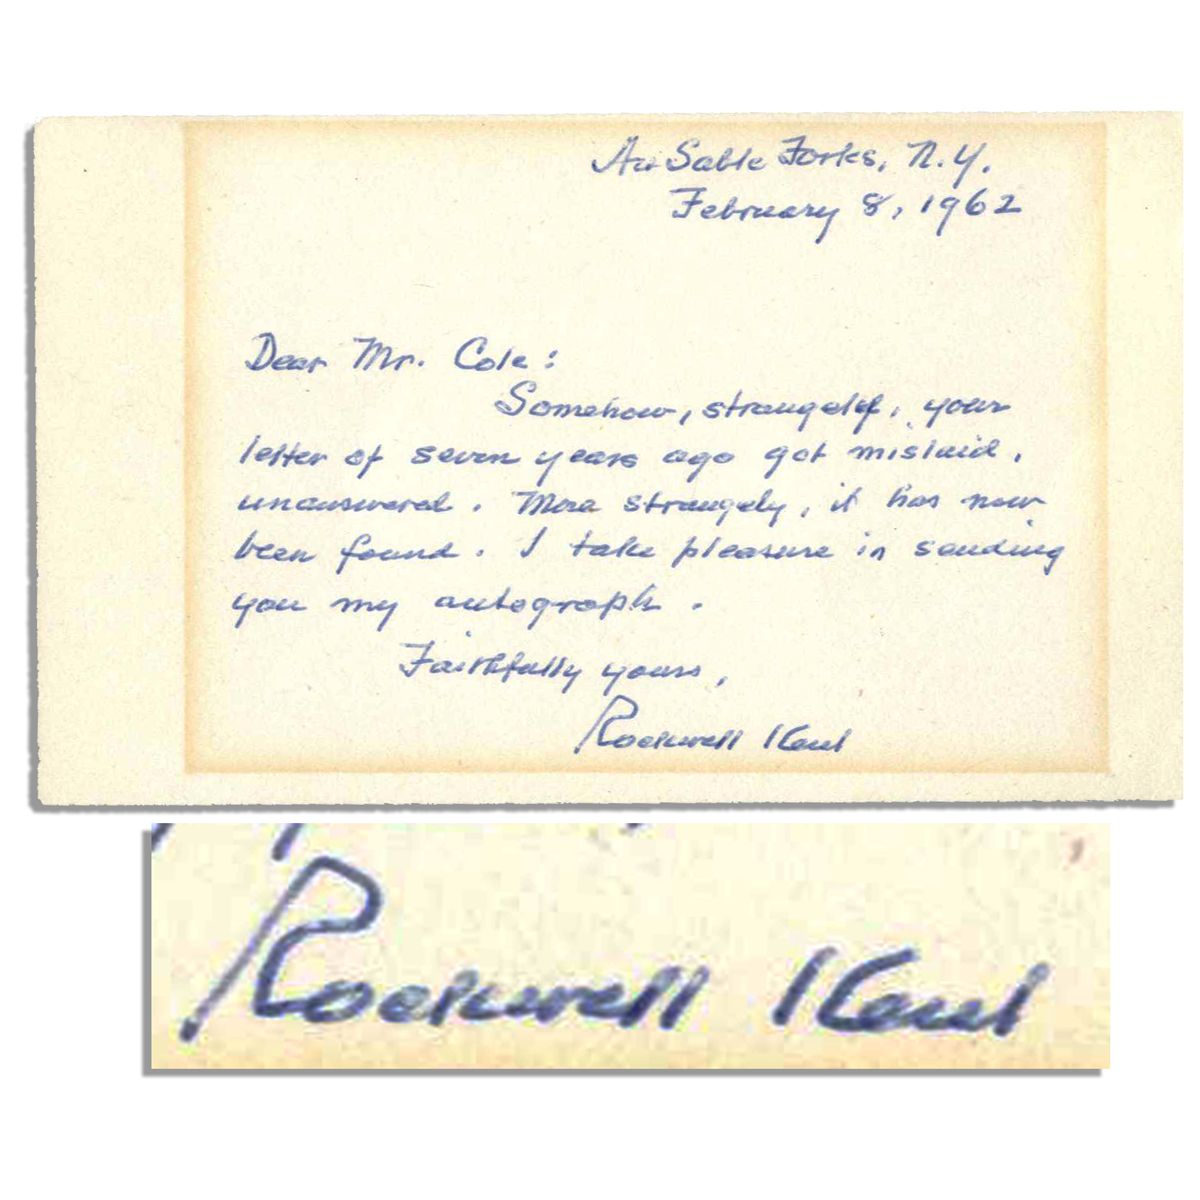 Au Sable Forks, N.Y.
February 8, 1962
Dear Mr. Cole:
Somehow, strangely, your
letter of seven years ago got mislaid,
unanswered. More strangely, it has now
been found. I take pleasure in sending
you my autograph.
Faithfully yours,
Rockwell Kent
Rockwell Kent